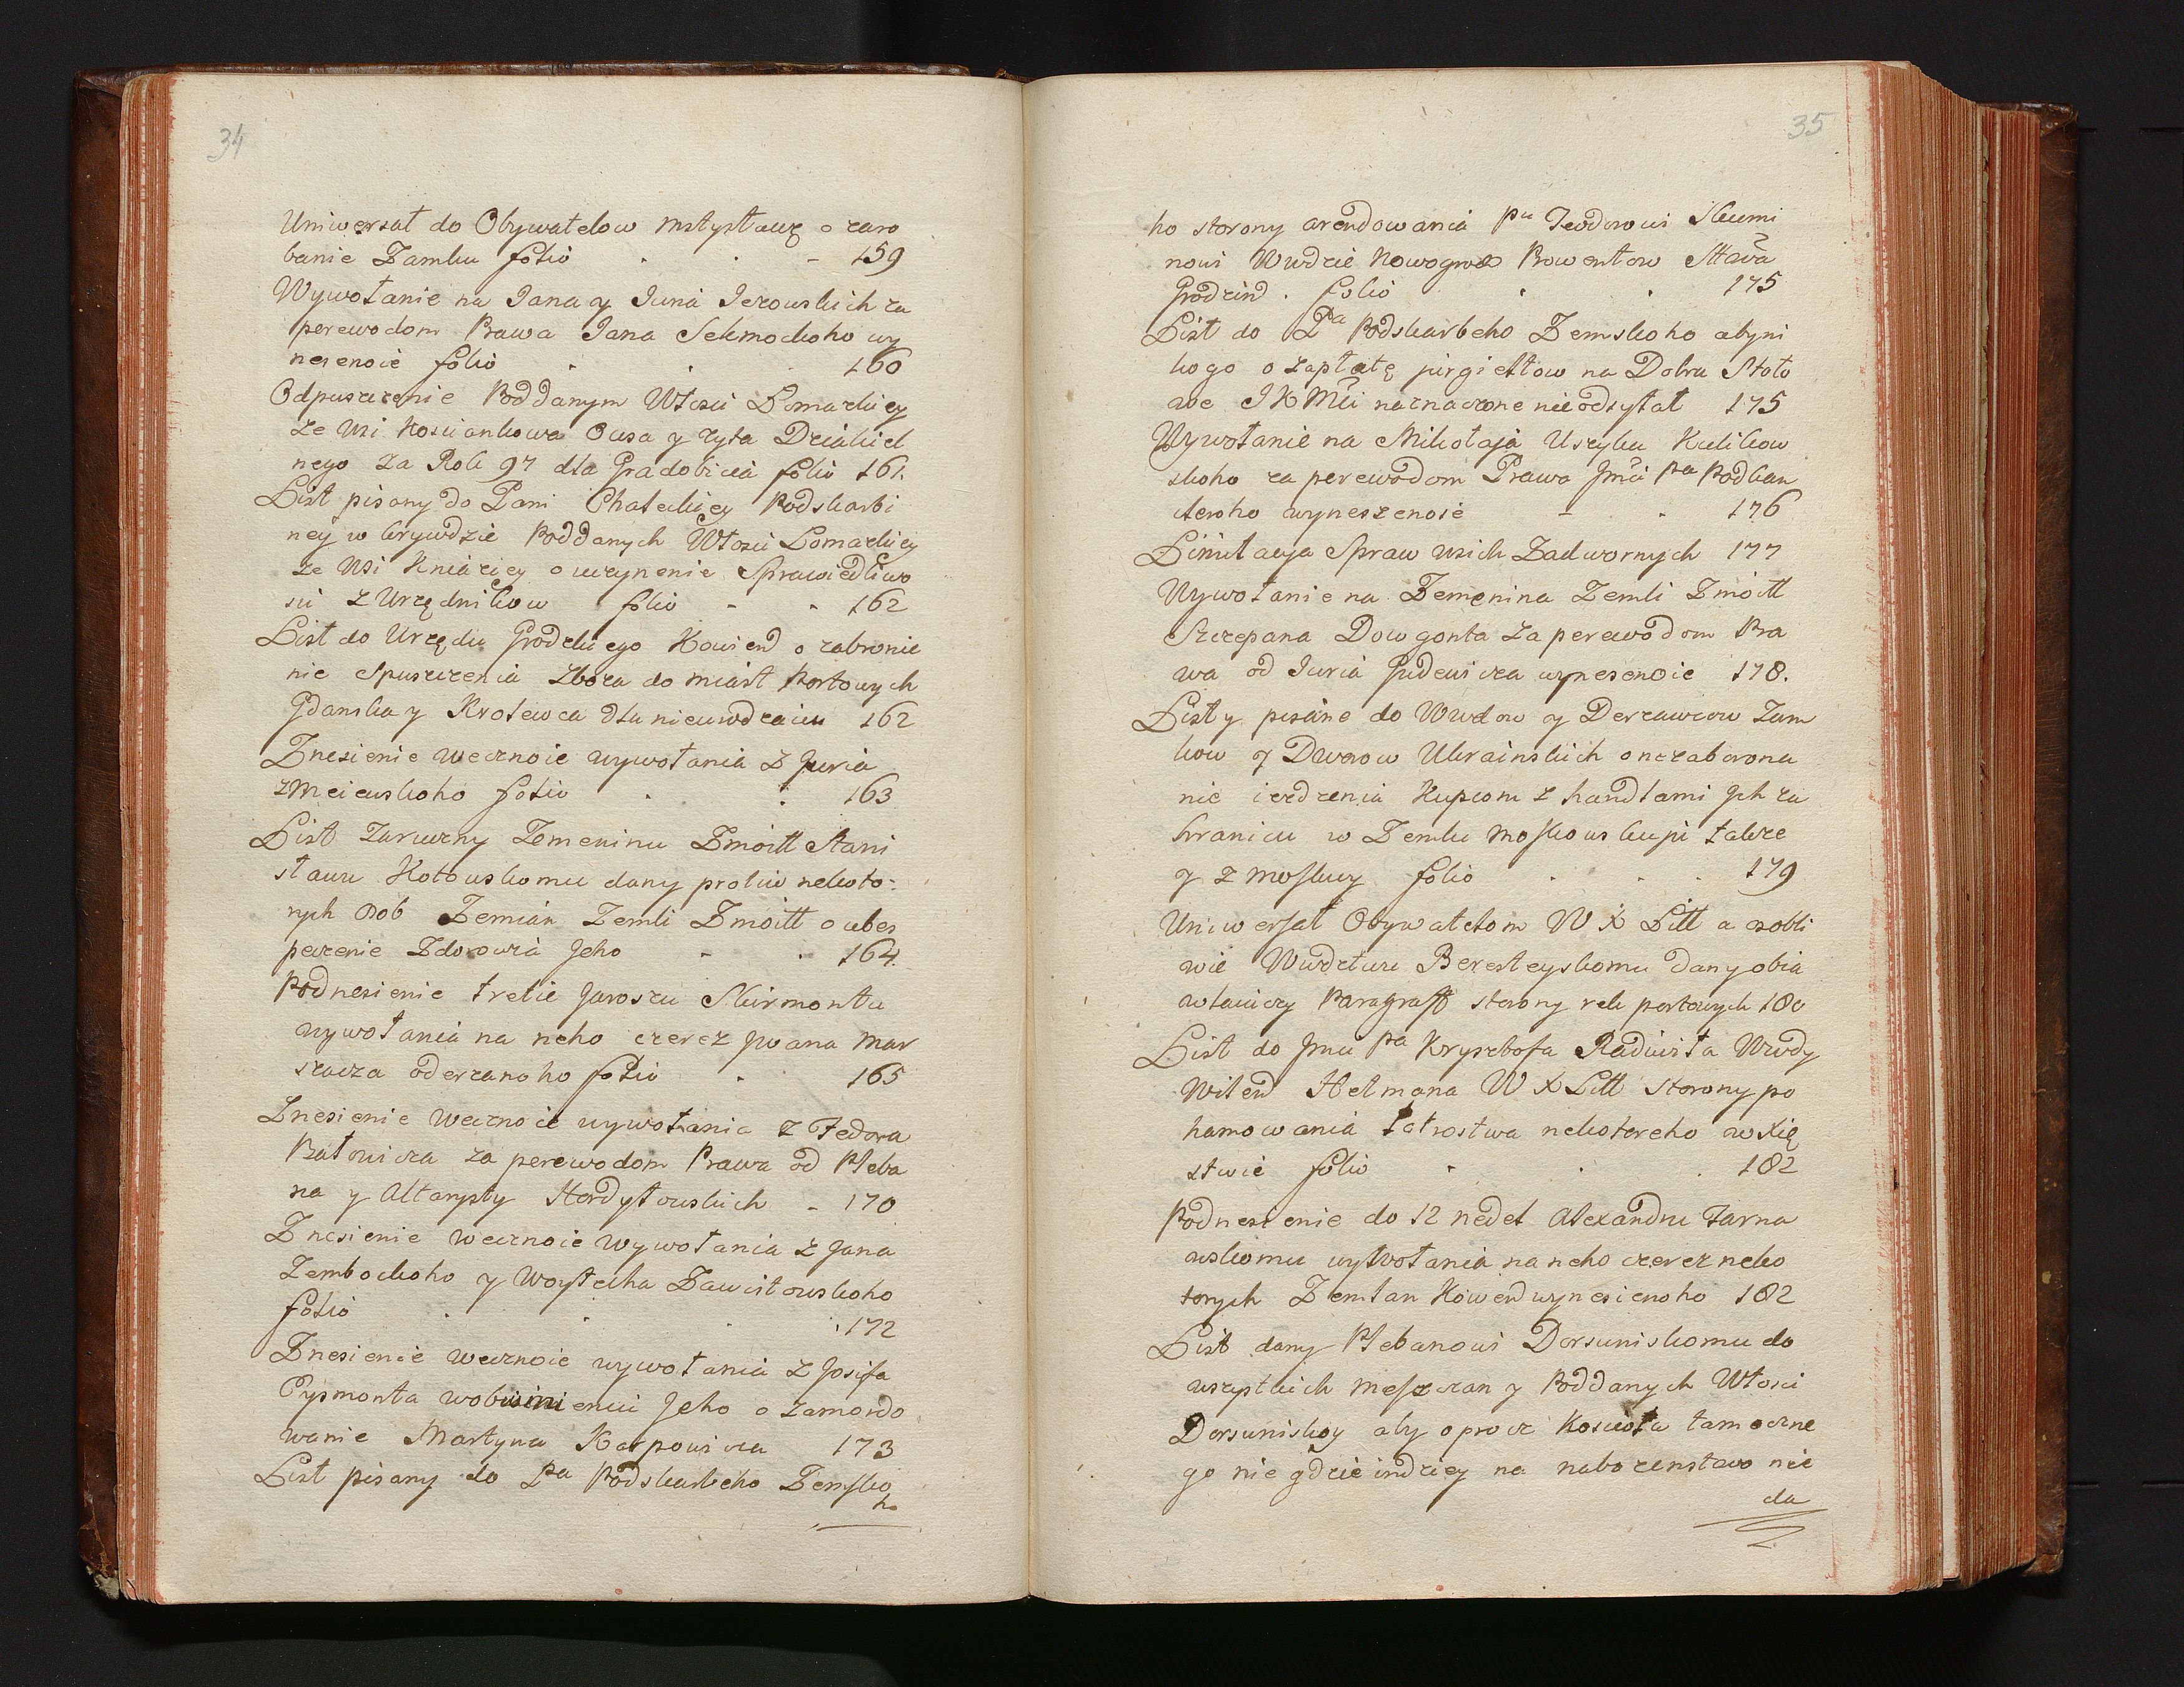 34
Uniwersał do Obywatelow Mstysławs o zaro
banie Zamku folio 159
Wywołanie na Jana y Juria Jezowskich za
perewodom Prawa Jana Sekmockoho wy
nesenoie folio 160
Odpuszczenie Poddanym Włości Łomazkiey
ze Wsi Kosciankowa Owsa y zyta Dziakiel
nego za Rok 97 dla Gradobicia folio 161.
List pisany do Pani Chaleckiey Podskarbi
ney w krywdzie Poddanych Włosci Łomazkiey
ze Wsi Kniaziey o uczynenie Sprawiedliwo
sci z Urzędnikow folio 162
List do Urzędu Grodzkiego Kowien o zabronie
nie Spuszczenia Zboza do Miast Portowych
Gdanska y Krolewca dla nieurodzaiu 162
Znesienie wecznoie wywołania z Juria
zmeiewskoho folio 163
List Zaruczny Zemeninu Zmoitt Stani
sławu Kotowskomu dany protiw nekoto-
rych osob Zemian Zemli Zmoitt o ubes
peczenie Zdorowia Jeho 164.
Podnesienie tretie Jaroszu Skirmontu
wywołania na neho czerez Jwana Mar
szacza oderzanoho folio 165
Znesienie wecznoie wywołania z Fedora
Batowicza za perewodom Prawa od Pleba
na y Altarysty Hordytowskich 170
Znesienie wecznoie wywołania z Jana
Zembockoho y Woytecha Zawistowskoho
folio 172
Znesienie wecznoie wywołania z Josifa
Pysmonta wobwinieniu Jeho o zamordo
wanie Martyna Karpowicza 173
List pisany do Pa Podskarbeho Zemsko
ho
35
ho storony arendowania Pu Teodorowi Skumi
nowi Wwdzie Nowogrod Prowentow Stawa
Grodzind. folio 175
List do Pa Podskarbeho Zemskoho abyni
kogo o zapłatę jurgieltow na Dobra Stoło
we JKMci naznaczone nieodsyłał 175
Wywołanie na Mikołaja Uszyku Kulikow
skoho za perewodom Prawa Jmci Pa Podkan
cleroho wyneszenoie 176
Limitacya Spraw wsich Zadwornych 177
Wywołanie na Zemenina Zemli Zmoitt
Szczepana Dowgonta za perewodom Pra
wa od Juria Gudewicza wynesenoie 178.
Listy pisane do Wwdow y Derzawcow Zam
kow y Dworow Ukrainskich onezaborona
nie iezdzenia Kupcom z handlami Jch za
hranicu w Zemlu Moskowskuju takze
y z Moskwy folio 179
Uniwersał Obywatelom W X Litt a osobli
wie Wwdztwu Beresteyskomu dany obia
wlaiuczy Paragraff storony rek portowych 180
List do Jmci Pa Krysztofa Radiwiła Wwdy
Wilend Hetmana W X Litt storony po
hamowania łotrostwa nekotoreho w Xię
stwie folio 182
Podnesienie do 12 nedel Alexandru Tarna
wskomu wywołania na neho czerez neko
torych Zemian Kowend wynesienoho 182
List dany Plebanowi Dorsuniskomu do
wszystkich Meszczan y Poddanych Włosci
Dorsuniskoy aby oprocz Koscioła tameczne
go nie gdzie indziey na nabozenstwo nie
da